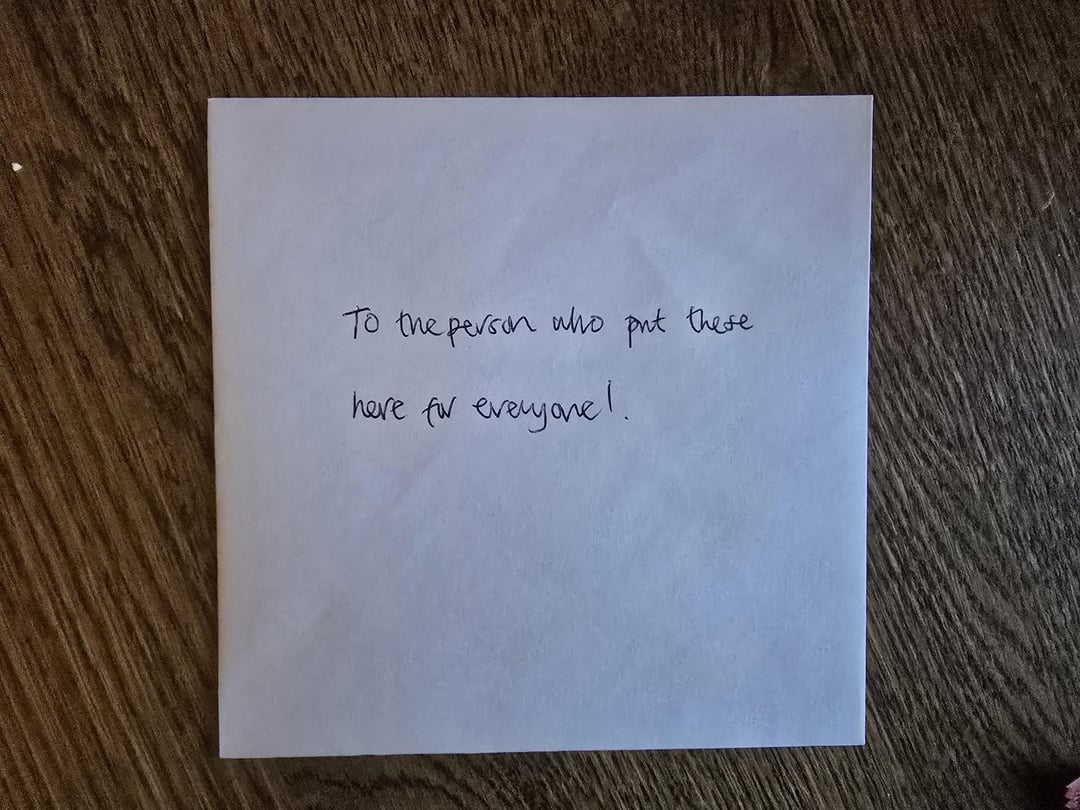 To the person who put these
here for everyone!.